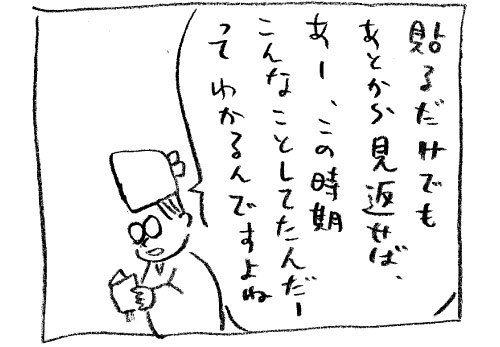 貼るだけでも
あとから見返せば、
あー、この時期
こんなことしてたんだー
ってわかるんですよね